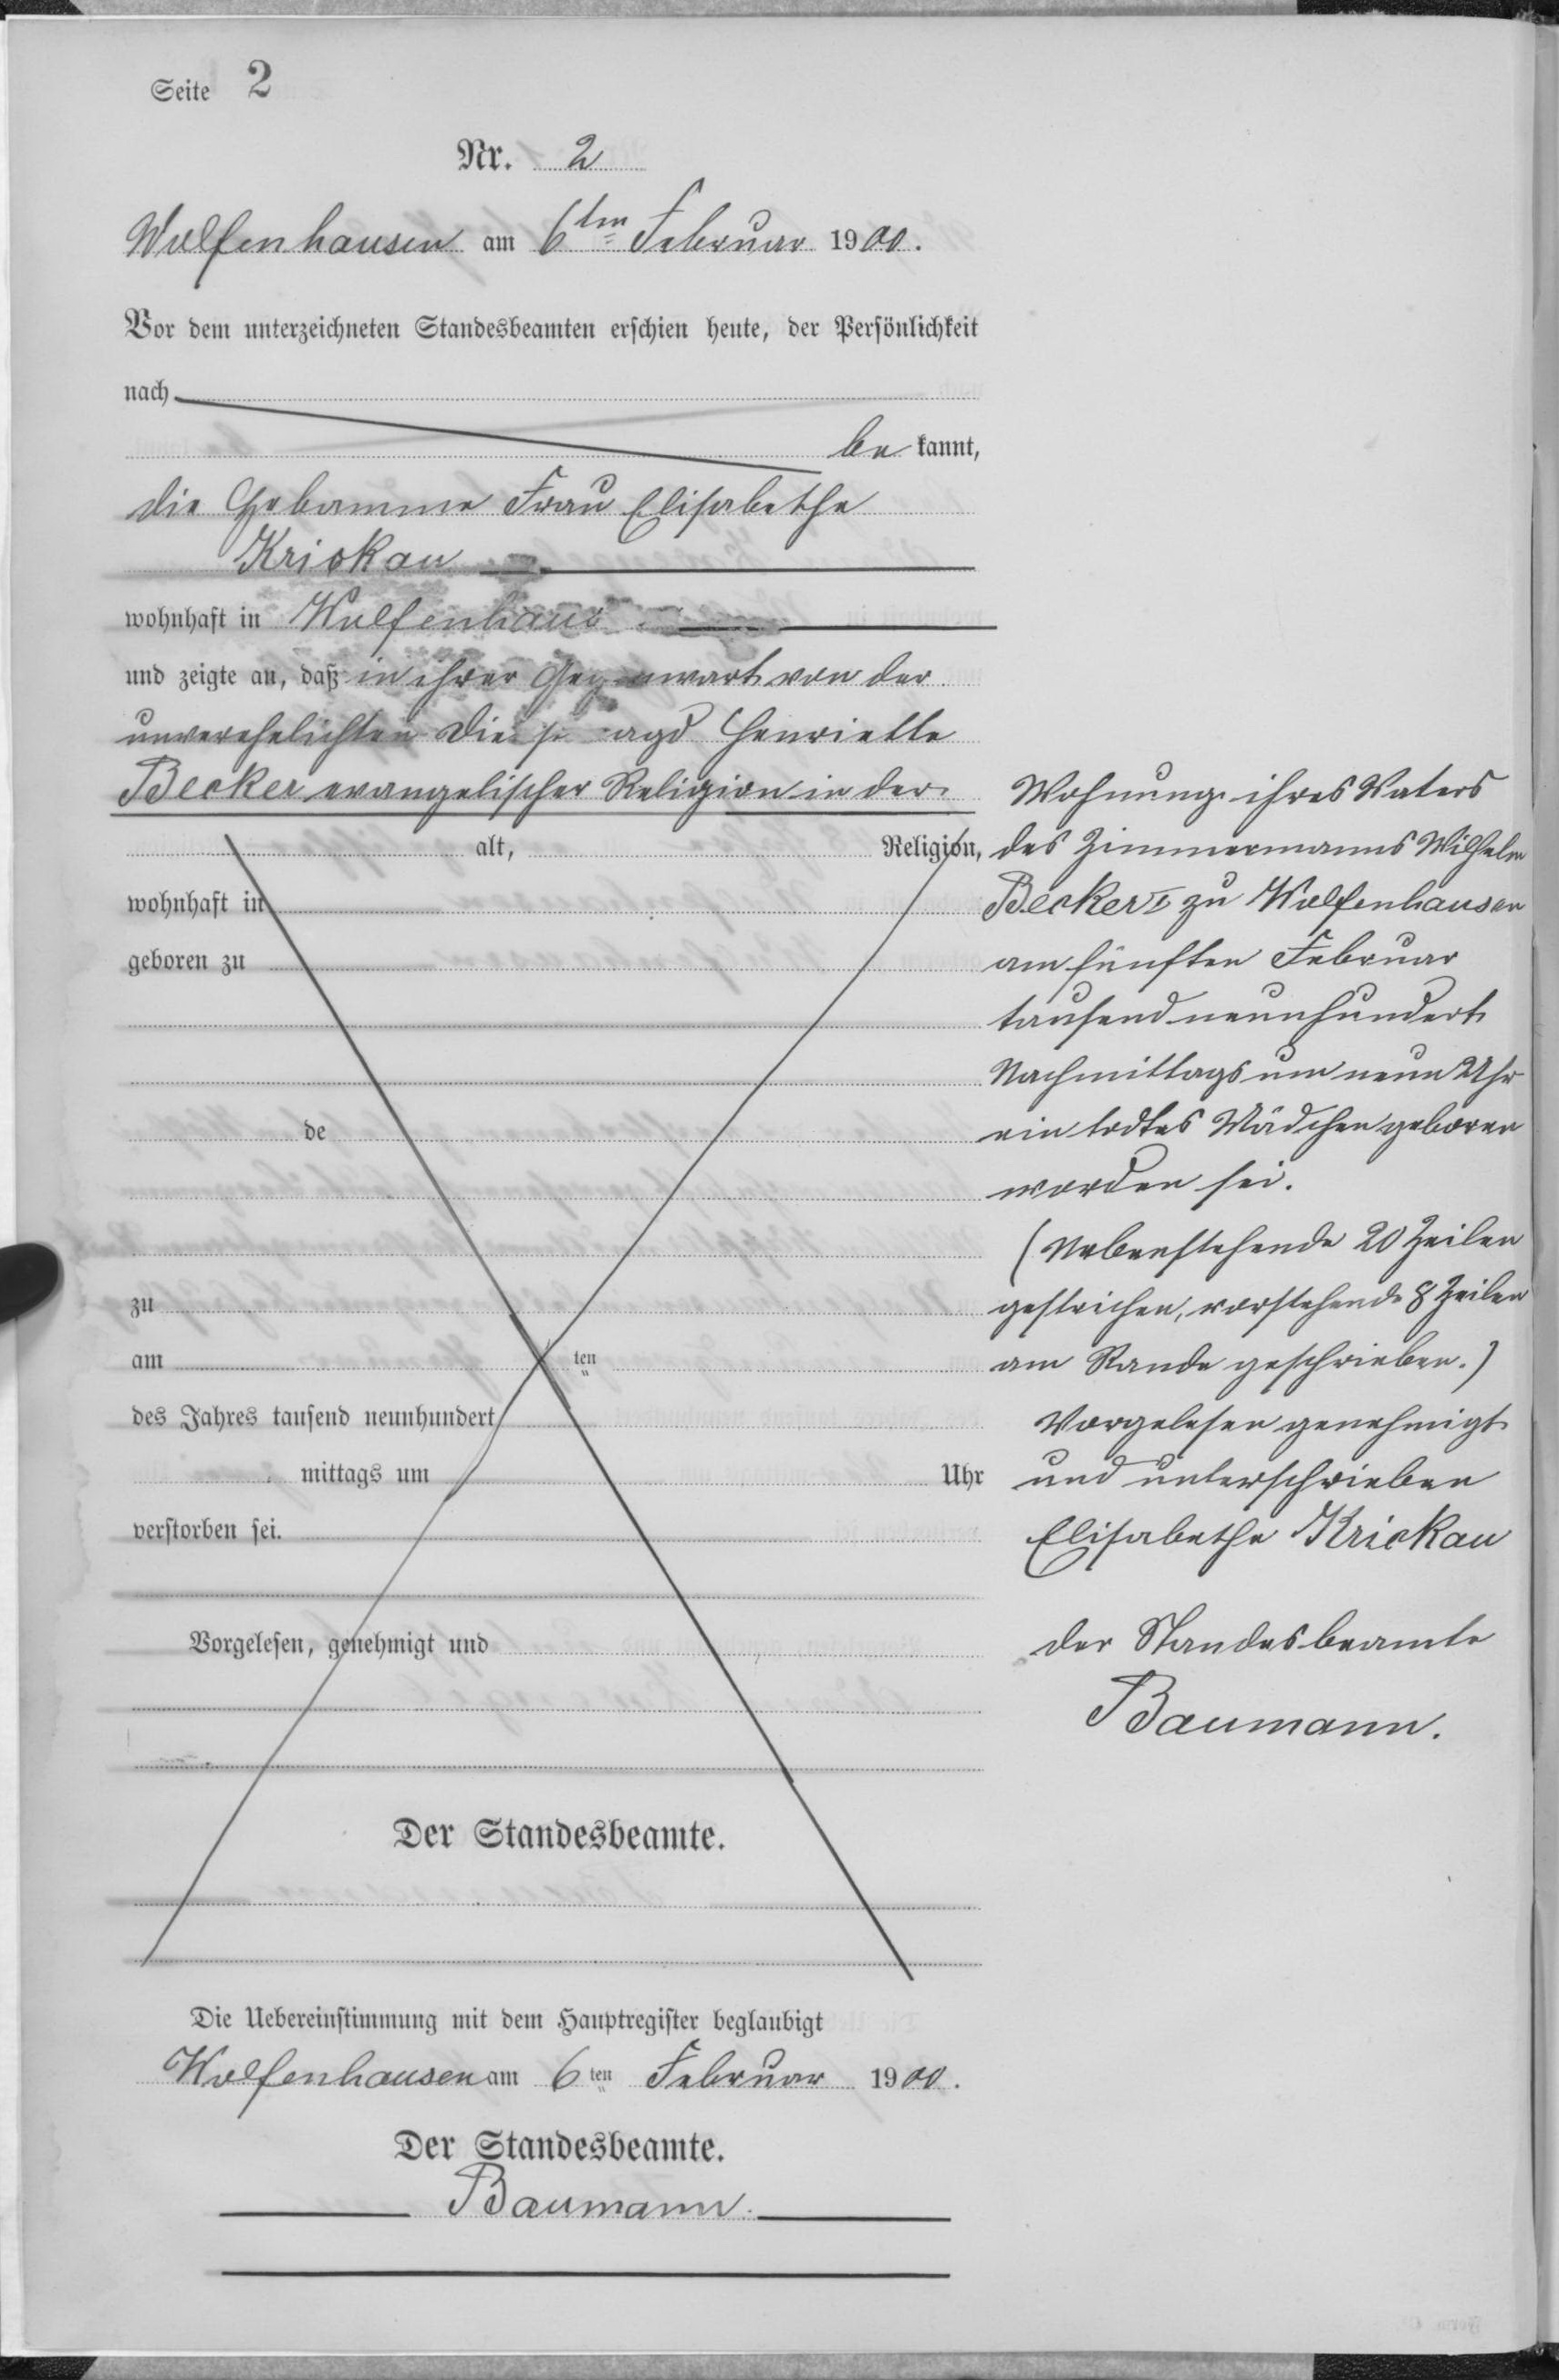 Seite 2
Nr. 2
Wolfenhausen am 6ten Februar 1900.
Vor dem unterzeichneten Standesbeamten erschien heute, der Persönlichkeit
nach
be kannt,
die Hebamme Frau Elisabethe
Krickau
wohnhaft in Wolfenhaus
und zeigte an, daß in ihrer Gegenwart von der
unverehelichten Dienstmagd Henriette
Becker evangelischer Religion in der
alt, Religion,
wohnhaft in
geboren zu
de
zu
am ten
des Jahres tausend neunhundert
mittags um Uhr
verstorben sei.
Vorgelesen, genehmigt und
Der Standesbeamte.
Wohnung ihres Vaters
des Zimmermanns Wilhelm
Becker I zu Wolfenhausen
am fünften Februar
tausend neunhundert
Nachmittags um neun Uhr
ein todtes Mädchen geboren
worden sei.
(Nebenstehende 20 Zeilen
gestrichen, vorstehende 8 Zeilen
am Rande geschrieben.)
Vorgelesen genehmigt
und unterschrieben
Elisabethe Krickau
der Standesbeamte
Baumann.
Die Uebereinstimmung mit dem Hauptregister beglaubigt
Wolfenhausen am 6ten Februar 1900.
Der Standesbeamte.
Baumann.